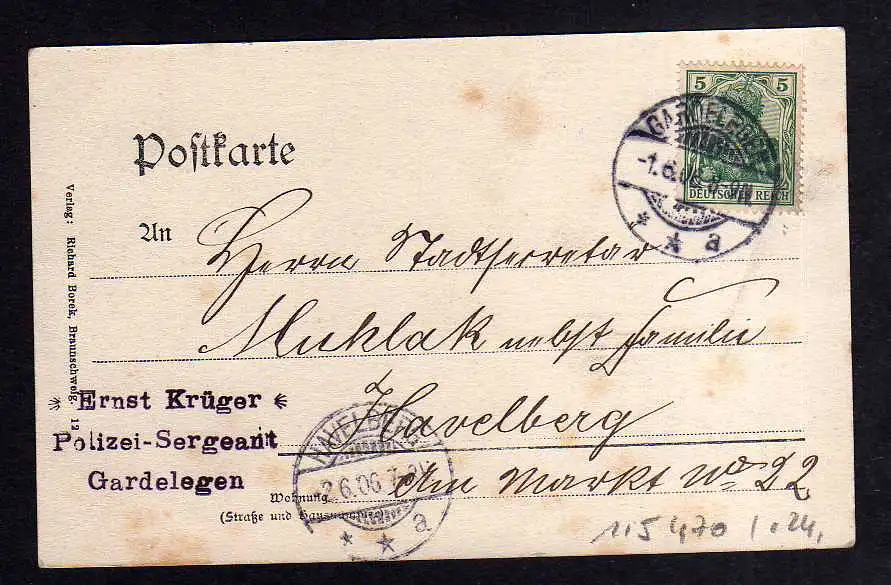 Postkarte
5 5
DEUTSCHES REICH
GARDELEGEN
-1.6.06.
* * a
An
Herrn Stadtsecretär
nebst Familie
Havelberg
Am Markt No 22
Verlag: Richard Borek, Braunschweig. 12
Ernst Krüger
Polizei-Sergeant
Gardelegen
HAVELBERG
2.6.06
* * a
Wohnung
(Straße und Hausnummer)
115470 1.24,